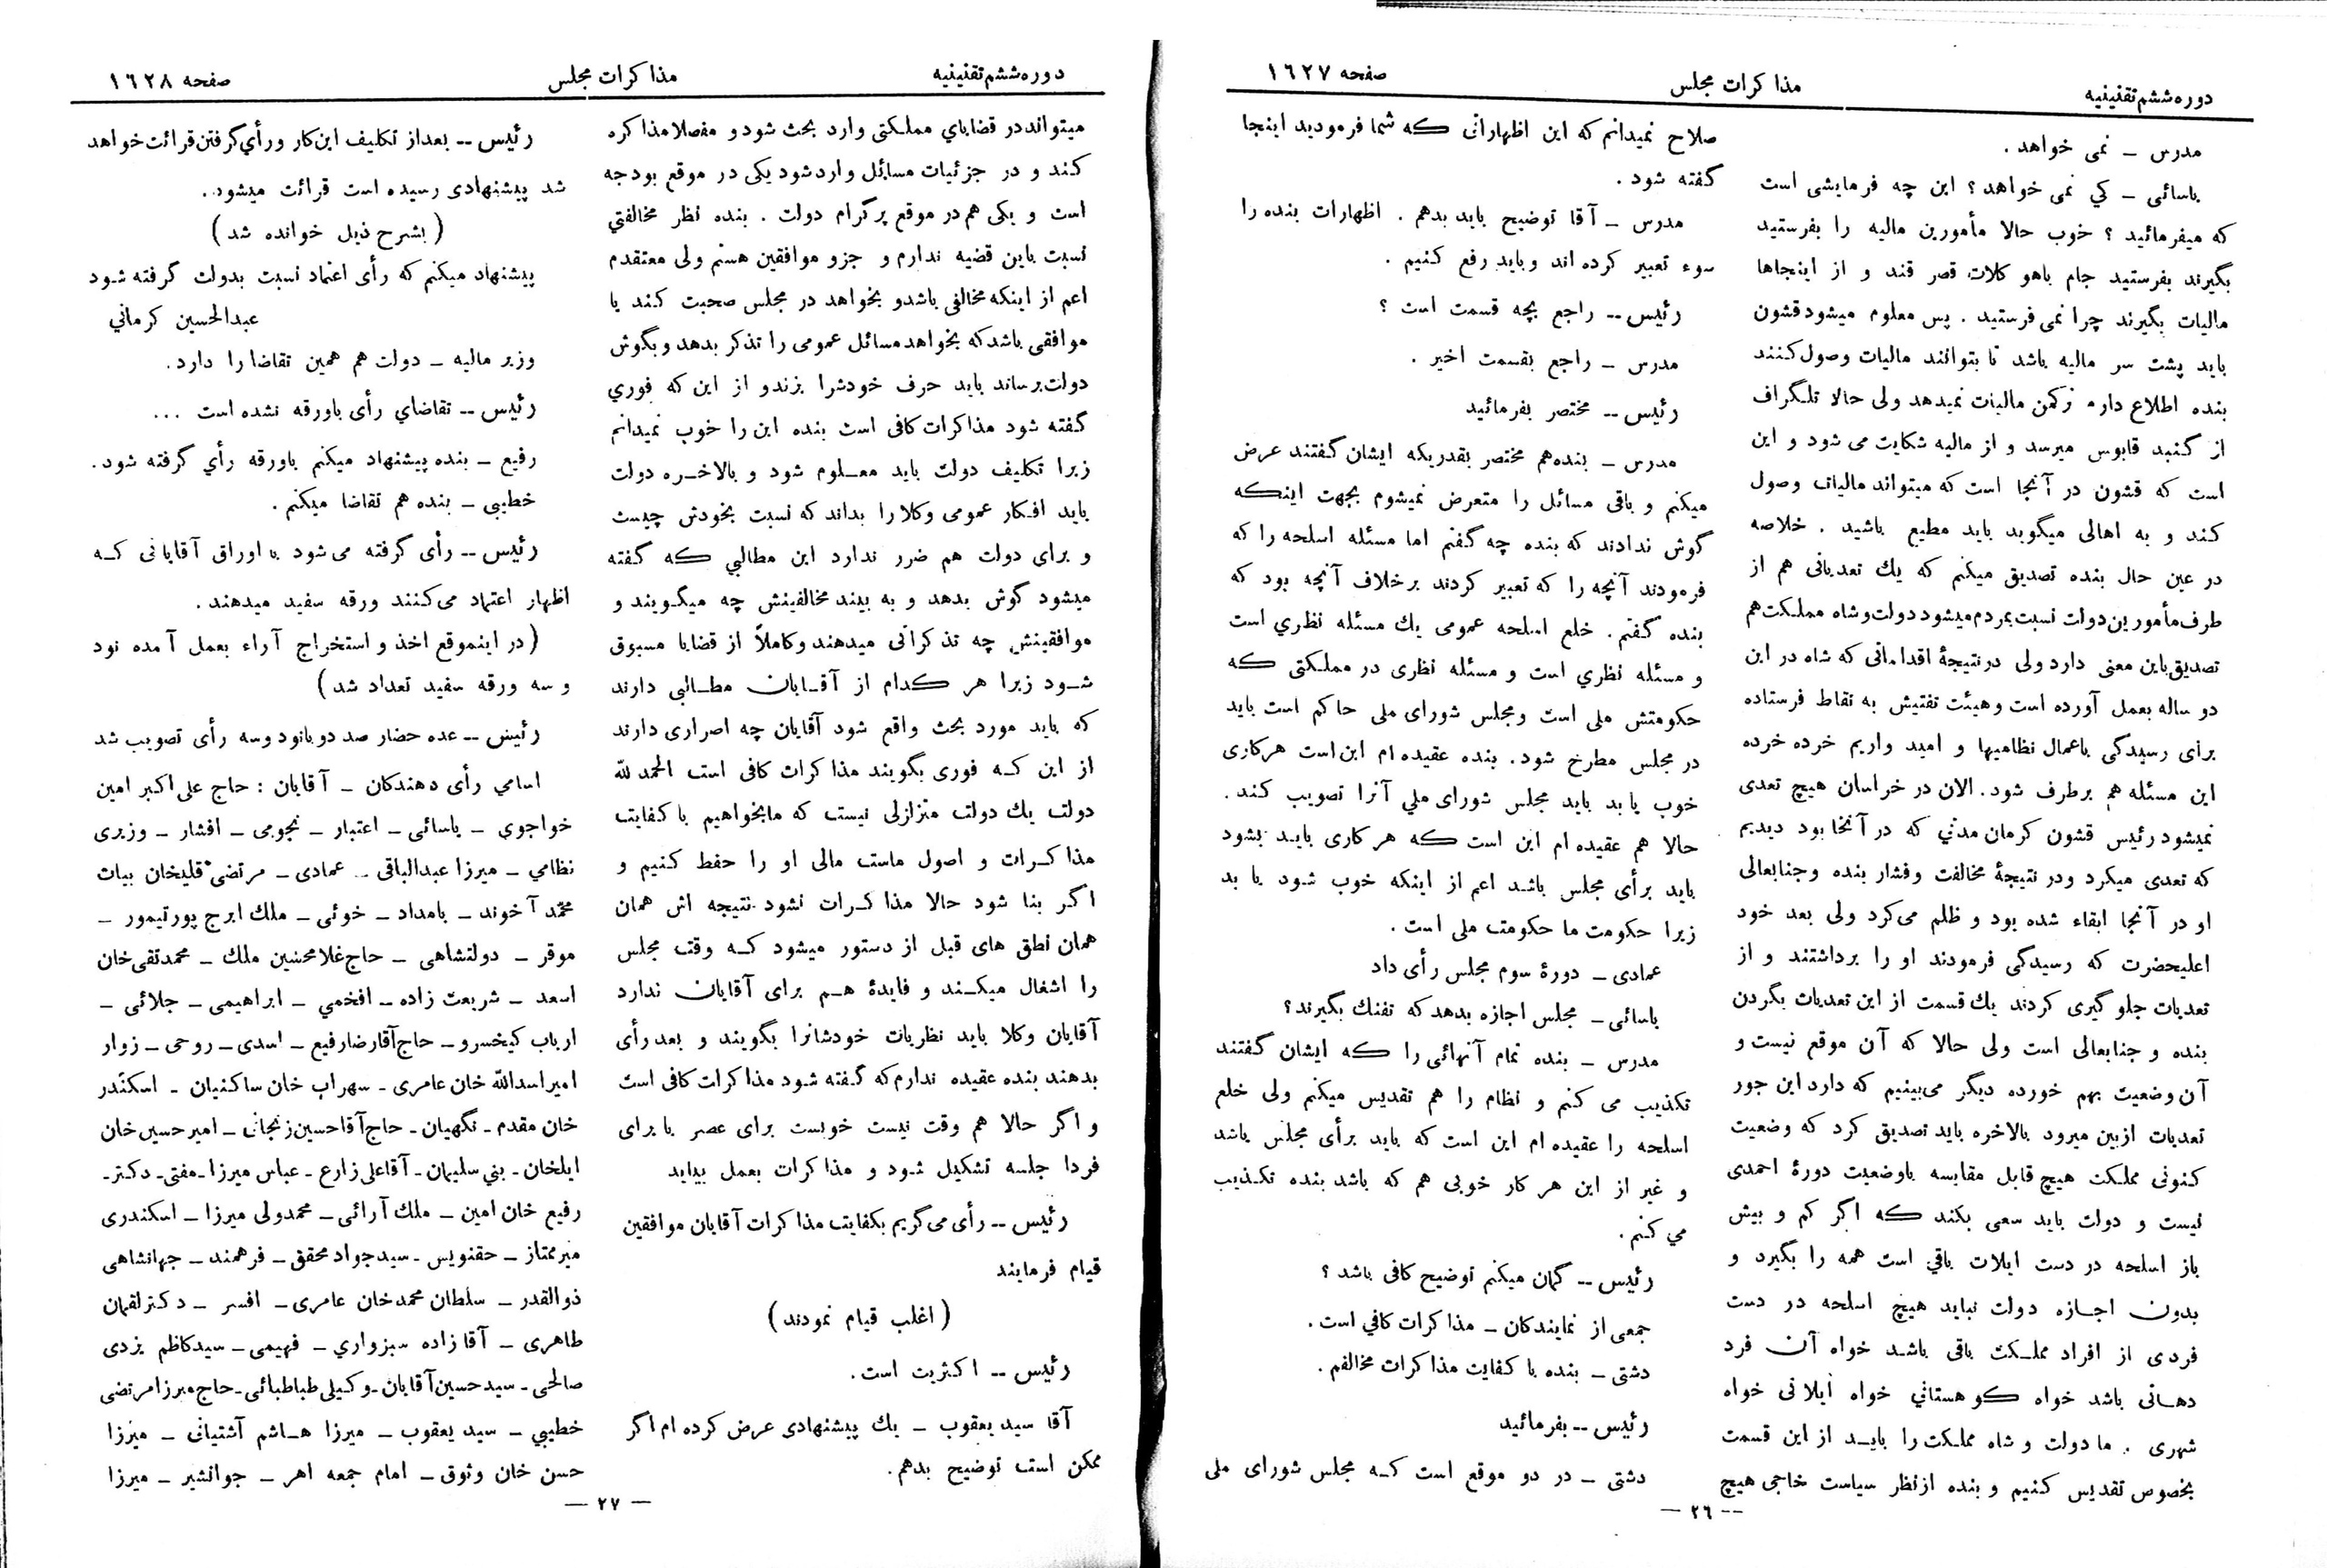 دوره ششم تقنینیه
مذاکرات مجلس
صفحه ١٦٢٧
مدرس ــ نمی خواهد.
یاسائی ــ کي نمی خواهد؟ این چه فرمایشی است
که میفرمائید؟ خوب حالا مأمورین مالیه را بفرستید
بگیرند بفرستید جام باهو کلات قصر قند و از اینجاها
مالیات بگیرند چرا نمی فرستید. پس معلوم میشود قشون
باید پشت سر مالیه باشد تا بتوانند مالیات وصول کنند
بنده اطلاع دارم ترکمن مالیات نمیدهد ولی حالا تلگراف
از گنبد قابوس میرسد و از مالیه شکایت می شود و این
است که قشون در آنجا است که میتواند مالیات وصول
کند و به اهالی میگوید باید مطیع باشید. خلاصه
در عین حال بنده تصدیق میکنم که یك تعدیاتی هم از
طرف مأمورین دولت نسبت بمردم میشود دولت و شاه مملکت هم
تصدیق باین معنی دارد ولی در نتیجۀ اقداماتی که شاه در این
دو ساله بعمل آورده است و هیئت تفتیش به نقاط فرستاده
برای رسیدگی باعمال نظامیها و امید واریم خرده خرده
این مسئله هم برطرف شود. الان در خراسان هیچ تعدی
نمیشود رئیس قشون کرمان مدتي که در آنجا بود دیدیم
که تعدی میکرد و در نتیجۀ مخالفت و فشار بنده و جنابعالی
او در آنجا ابقاء شده بود و ظلم می کرد ولی بعد خود
اعلیحضرت که رسیدگی فرمودند او را برداشتند و از
تعدیات جلو گیری کردند یك قسمت از این تعدیات بگردن
بنده و جنابعالی است ولی حالا که آن موقع نیست و
آن وضعیت بهم خورده دیگر می بینیم که دارد این جور
تعدیات از بین میرود بالاخره باید تصدیق کرد که وضعیت
کنونی مملکت هیچ قابل مقایسه با وضعیت دورۀ احمدی
نیست و دولت باید سعی بکند که اگر کم و بیش
باز اسلحه در دست ایلات باقي است همه را بگیرد و
بدون اجازه دولت نباید هیچ اسلحه در دست
فردی از افراد مملکت باقی باشد خواه آن فرد
دهاتی باشد خواه کوهستاني خواه ایلاتی خواه
شهری. ما دولت و شاه مملکت را باید از این قسمت
بخصوص تقدیس کنیم و بنده از نظر سیاست خاجی هیچ
صلاح نمیدانم که این اظهاراتی که شما فرمودید اینجا
گفته شود.
مدرس ــ آقا توضیح باید بدهم. اظهارات بنده را
سوء تعبیر کرده اند و باید رفع کنیم.
رئیس ــ راجع بچه قسمت است؟
مدرس ــ راجع بقسمت اخیر.
رئیس ــ مختصر بفرمائید
مدرس ــ بنده هم مختصر بقدریکه ایشان گفتند عرض
میکنم و باقی مسائل را متعرض نمیشوم بجهت اینکه
گوش ندادند که بنده چه گفتم اما مسئله اسلحه را که
فرمودند آنچه را که تعبیر کردند برخلاف آنچه بود که
بنده گفتم. خلع اسلحه عمومی یك مسئله نظري است
و مسئله نظري است و مسئله نظری در مملکتی که
حکومتش ملی است و مجلس شورای ملی حاکم است باید
در مجلس مطرخ شود. بنده عقیده ام این است هر کاری
خوب یا بد باید مجلس شورای ملي آنرا تصویب کند.
حالا هم عقیده ام این است که هر کاری باید بشود
باید برأی مجلس باشد اعم از اینکه خوب شود یا بد
زیرا حکومت ما حکومت ملی است.
عمادی ــ دورۀ سوم مجلس رأی داد
یاسائی ــ مجلس اجازه بدهد که تفنك بگیرند؟
مدرس ــ بنده تمام آنهائی را که ایشان گفتند
تکذیب می کنم و نظام را هم تقدیس میکنم ولی خلع
اسلحه را عقیده ام این است که باید برأی مجلس باشد
و غیر از این هر کار خوبی هم که باشد بنده تکذیب
می کنم.
رئیس ــ گمان میکنم توضیح کافی باشد؟
جمعی از نمایندکان ــ مذاکرات کافي است.
دشتی ــ بنده با کفایت مذاکرات مخالفم.
رئیس ــ بفرمائید
دشتی ــ در دو موقع است که مجلس شورای ملی
— ٢٦ —
دوره ششم تقنینیه
مذاکرات مجلس
صفحه ١٦٢٨
میتواند در قضایاي مملکتی وارد بحث شود و مفصلا مذاکره
کند و در جزئیات مسائل وارد شود یکی در موقع بودجه
است و یکی هم در موقع پرگرام دولت. بنده نظر مخالفتي
نسبت باین قضیه ندارم و جزو موافقین هستم ولی معتقدم
اعم از اینکه مخالفی باشد و بخواهد در مجلس صحبت کند یا
موافقی باشد که بخواهد مسائل عمومی را تذکر بدهد و بگوش
دولت برساند باید حرف خودش را بزند و از این که فوري
گفته شود مذاکرات کافی است بنده این را خوب نمیدانم
زیرا تکلیف دولت باید معلوم شود و بالاخره دولت
باید افکار عمومی وکلا را بداند که نسبت بخودش چیست
و برای دولت هم ضرر ندارد این مطالبي که گفته
میشود گوش بدهد و به بیند مخالفینش چه میگویند و
موافقینش چه تذکراتی میدهند و کاملاً از قضایا مسبوق
شود زیرا هر کدام از آقایان مطالبی دارند
که باید مورد بحث واقع شود آقایان چه اصراری دارند
از این که فوری بگویند مذاکرات کافی است الحمد لله
دولت یك دولت متزلزلی نیست که ما بخواهیم با کفایت
مذاکرات و اصول ماست مالی او را حفظ کنیم و
اگر بنا شود حالا مذاکرات نشود نتیجه اش همان
همان نطق های قبل از دستور میشود که وقت مجلس
را اشغال میکند و فایدۀ هم برای آقایان ندارد
آقایان وکلا باید نظریات خودشانرا بگویند و بعد رأی
بدهند بنده عقیده ندارم که گفته شود مذاکرات کافی است
و اگر حالا هم وقت نیست خوبست برای عصر یا برای
فردا جلسه تشکیل شود و مذاکرات بعمل بیاید
رئیس ــ رأی می گریم بکفایت مذاکرات آقایان موافقین
قیام فرمایند
(اغلب قیام نمودند)
رئیس ــ اکثریت است.
آقا سید یعقوب ــ یك پیشنهادی عرض کرده ام اگر
ممکن است توضیح بدهم.
رئیس ــ بعد از تکلیف این کار و رأي گرفتن قرائت خواهد
شد پیشنهادی رسیده است قرائت میشود.
(بشرح ذیل خوانده شد)
پیشنهاد میکنم که رأی اعتماد نسبت بدولت گرفته شود
عبدالحسین کرماني
وزیر مالیه ــ دولت هم همین تقاضا را دارد.
رئیس ــ تقاضاي رأی باورقه نشده است ...
رفیع ــ بنده پیشنهاد میکنم باورقه رأي گرفته شود.
خطیبی ــ بنده هم تقاضا میکنم.
رئیس ــ رأی گرفته می شود با اوراق آقایانی که
اظهار اعتماد می کنند ورقه سفید میدهند.
(در اینموقع اخذ و استخراج آراء بعمل آمده نود
و سه ورقه سفید تعداد شد)
رئیس ــ عده حضار صد دو بانود و سه رأی تصویب شد
اسامي رأی دهندکان ــ آقایان: حاج علی اکبر امین
خواجوي ــ یاسائی ــ اعتبار ــ نجومی ــ افشار ــ وزیری
نظامي ــ میرزا عبدالباقی ــ عمادی ــ مرتضی قلیخان بیات
محمد آخوند ــ بامداد ــ خوئی ــ ملك ایرج پور تیمور ــ
موقر ــ دولتشاهی ــ حاج غلامحسین ملك ــ محمد تقی خان
اسعد ــ شریعت زاده ــ افخمي ــ ابراهیمی ــ جلائی ــ
ارباب کیخسرو ــ حاج آقا رضا رفیع ــ اسدی ــ روحی ــ زوار
امیر اسدالله خان عامری ــ سهراب خان ساکنیان ــ اسکندر
خان مقدم ــ نگهبان ــ حاج آقا حسین زنجانی ــ امیر حسین خان
ایلخان ــ بني سلیمان ــ آقا علی زارع ــ عباس میرزا ــ مفتی ــ دکتر ــ
رفیع خان امین ــ ملك آرائی ــ محمد ولی میرزا ــ اسکندری
میر ممتاز ــ حقنویس ــ سید جواد محقق ــ فرهمند ــ جهانشاهی
ذوالقدر ــ سلطان محمد خان عامری ــ افسر ــ دکتر لقمان
طاهری ــ آقا زاده سبزواري ــ فهیمی ــ سید کاظم یزدی
صالحی ــ سید حسین آقایان ــ وکیلی طباطبائی ــ حاج میرزا مرتضی
خطیبي ــ سید یعقوب ــ میرزا هاشم آشتیانی ــ میرزا
حسن خان وثوق ــ امام جمعه اهر ــ جوانشیر ــ میرزا
— ٢٧ —